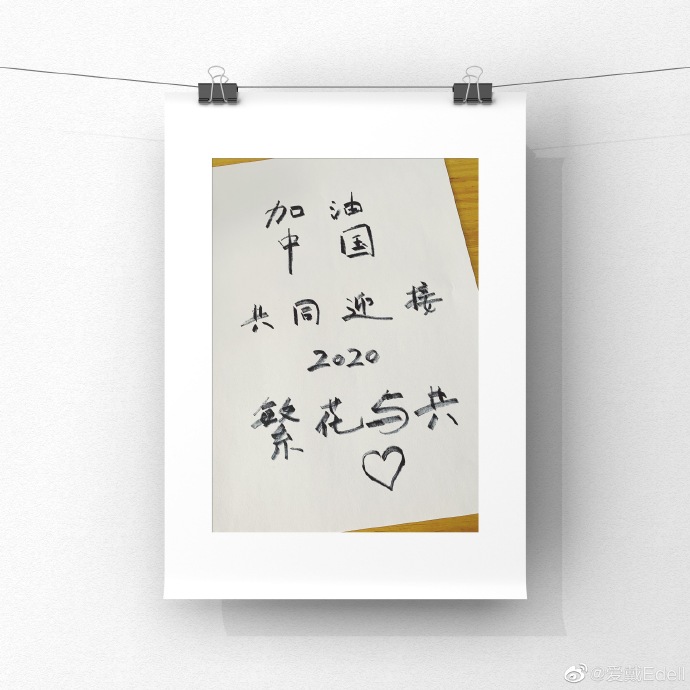 加油
中国
共同迎接
2020
繁花与共
@爱戴Edell